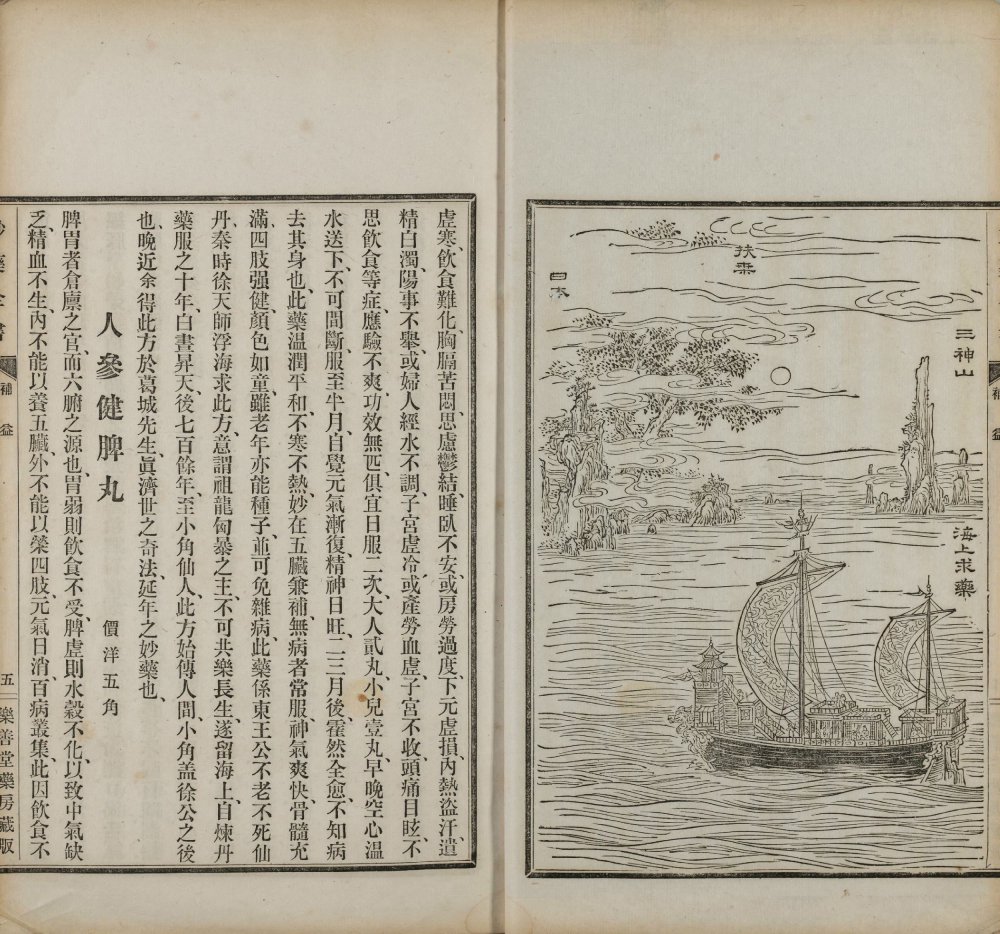 三神山
海上求藥
扶桑
日本
補益
虛寒、飲食難化、胸膈苦悶、思慮鬱結、睡臥不安、或房勞過度、下元虛損、內熱盜汗、遺
精白濁、陽事不舉、或婦人經水不調、子宮虛冷、或產勞血虛、子宮不收、頭痛目眩、不
思飲食等症、應驗不爽、功效無匹、俱宜日服二次、大人貳丸、小兒壹丸、早晚空心溫
水送下、不可間斷、服至半月、自覺元氣漸復、精神日旺、二三月後、霍然全愈、不知病
去其身也、此藥溫潤平和、不寒不熱、妙在五臟兼補、無病者常服、神氣爽快、骨髓充
滿、四肢强健、顏色如童、雖老年亦能種子、並可免雜病、此藥係東王公不老不死仙
丹、秦時徐天師浮海求此方、意謂祖龍匈暴之主、不可共樂長生、遂留海上、自煉丹
藥服之十年、白晝昇天、後七百餘年、至小角仙人、此方始傳人間、小角盖徐公之後
也、晚近余得此方於葛城先生、眞濟世之奇法、延年之妙藥也、
人參健脾丸 價洋五角
脾胃者倉廪之官、而六腑之源也、胃弱則飲食不受、脾虛則水穀不化、以致中氣缺
乏、精血不生、內不能以養五臟、外不能以榮四肢、元氣日消、百病叢集、此因飲食不
藥全書 補益 五 樂善堂藥房藏版